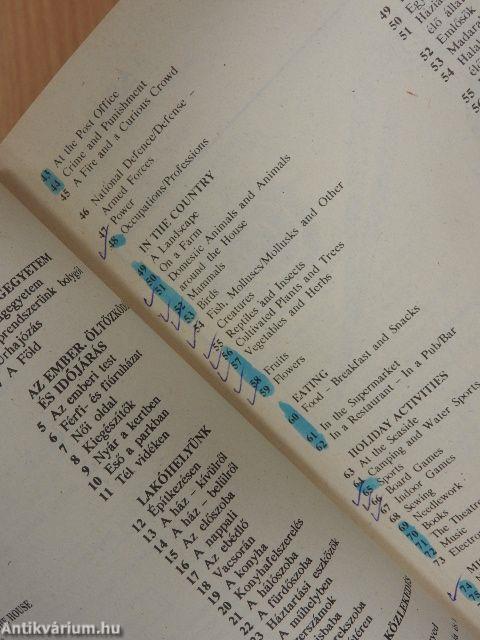 43 At the Post Office
44 Crime and Punishment
45 A Fire and a Curious Crowd
46 National Defence/Defense –
Armed Forces
47 Power
48 Occupations/Professions
IN THE COUNTRY
49 A Landscape
50 On a Farm
51 Domestic Animals and Animals
around the House
52 Mammals
53 Birds
54 Fish, Molluscs/Mollusks and Other
Creatures
55 Reptiles and Insects
56 Cultivated Plants and Trees
57 Vegetables and Herbs
58 Fruits
59 Flowers
EATING
60 Food – Breakfast and Snacks
61 In the Supermarket
62 In a Restaurant – In a Pub/Bar
HOLIDAY ACTIVITIES
63 At the Seaside
64 Camping and Water Sports
65 Sports
66 Board Games
67 Indoor Games
68 Sewing
69 Needlework
70 Books
71 The Theatre
72 Music
73 Electron
74
49
50
51
52
53
54
55
A Föld
AZ EMBER, ÖLTÖZKÖD
ÉS IDŐJÁRÁS
5 Az emberi test
6 Férfi- és fiúruházat
7 Női oldal
8 Kiegészítők
9 Nyár a kertben
10 Eső a parkban
11 Tél vidéken
LAKÓHELYÜNK
12 Építkezésen
13 A ház – kívülről
14 A ház – belülről
15 Az előszoba
16 A nappali
17 Az ebédlő
18 Vacsorán
19 A konyha
20 Konyhafelszerelés
21 A hálószoba
22 A fürdőszoba
23 Háztartási eszközök
HOUSE
Antikvárium.hu